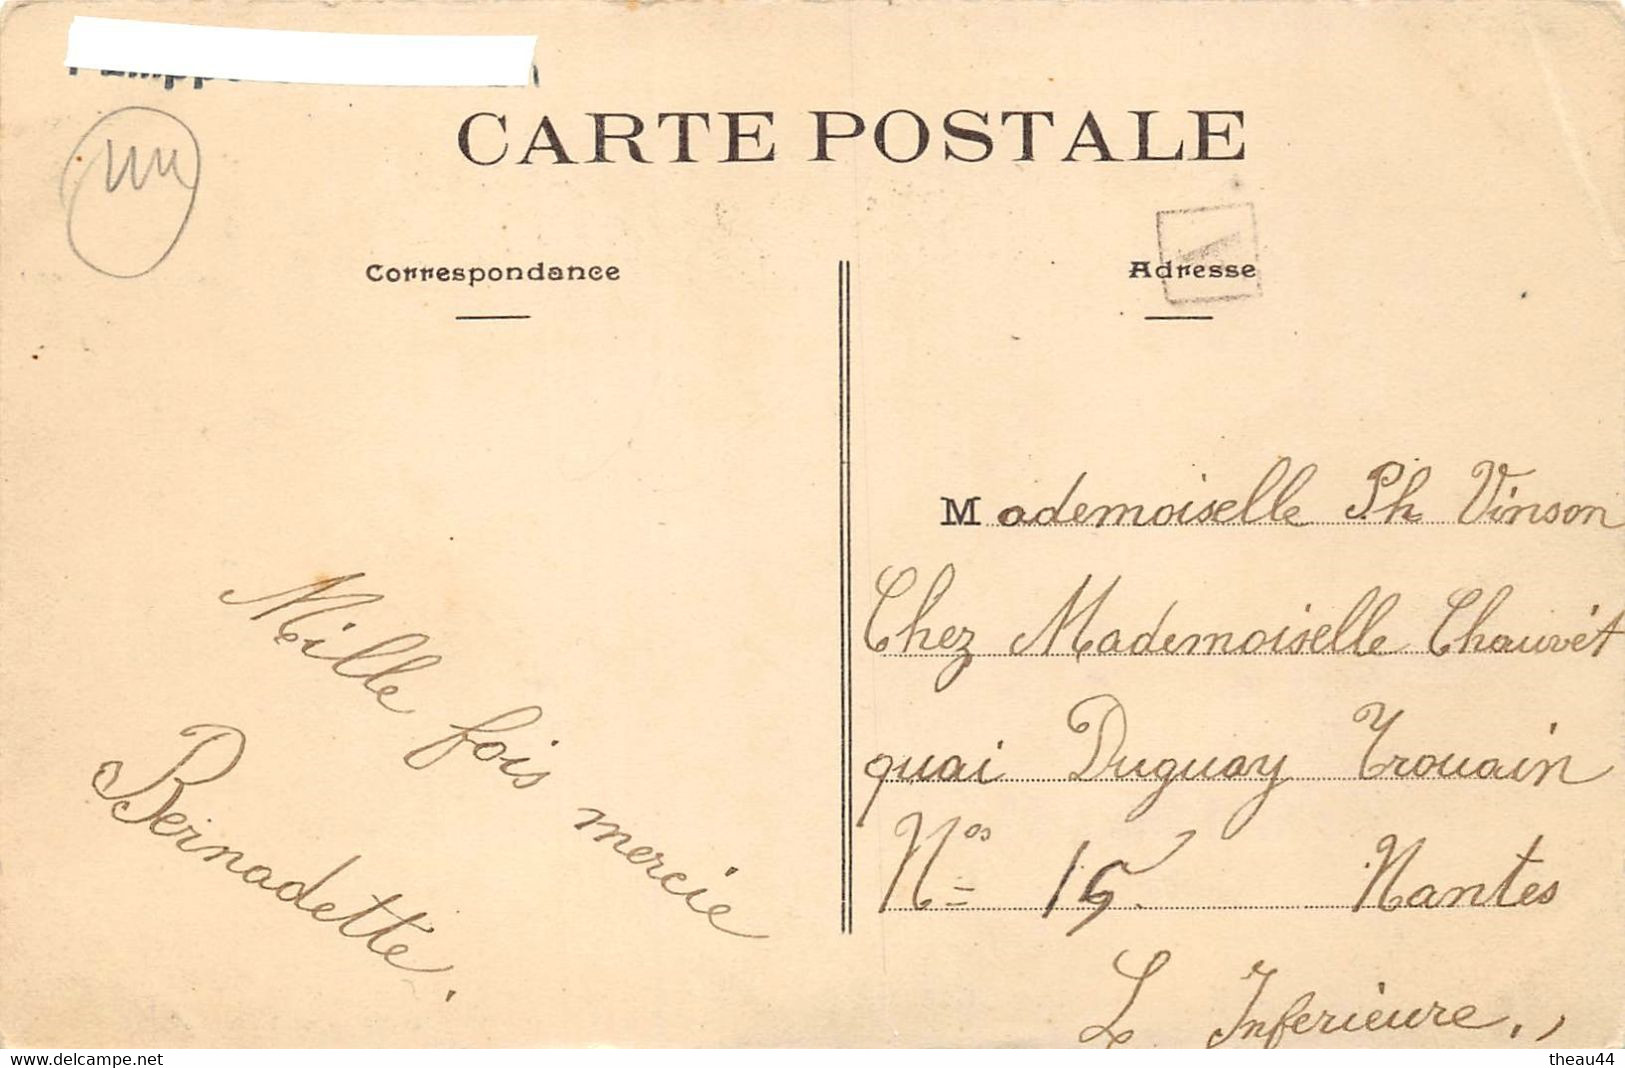 CARTE POSTALE
Correspondance
Adresse
Mille fois mercie
Bernadette.
Mademoiselle Ph Vinson
Chez Mademoiselle Chauvèt
quai Duguay Trouain
Nos = 15. Nantes
L. Inferieure.,
www.delcampe.net
theau44